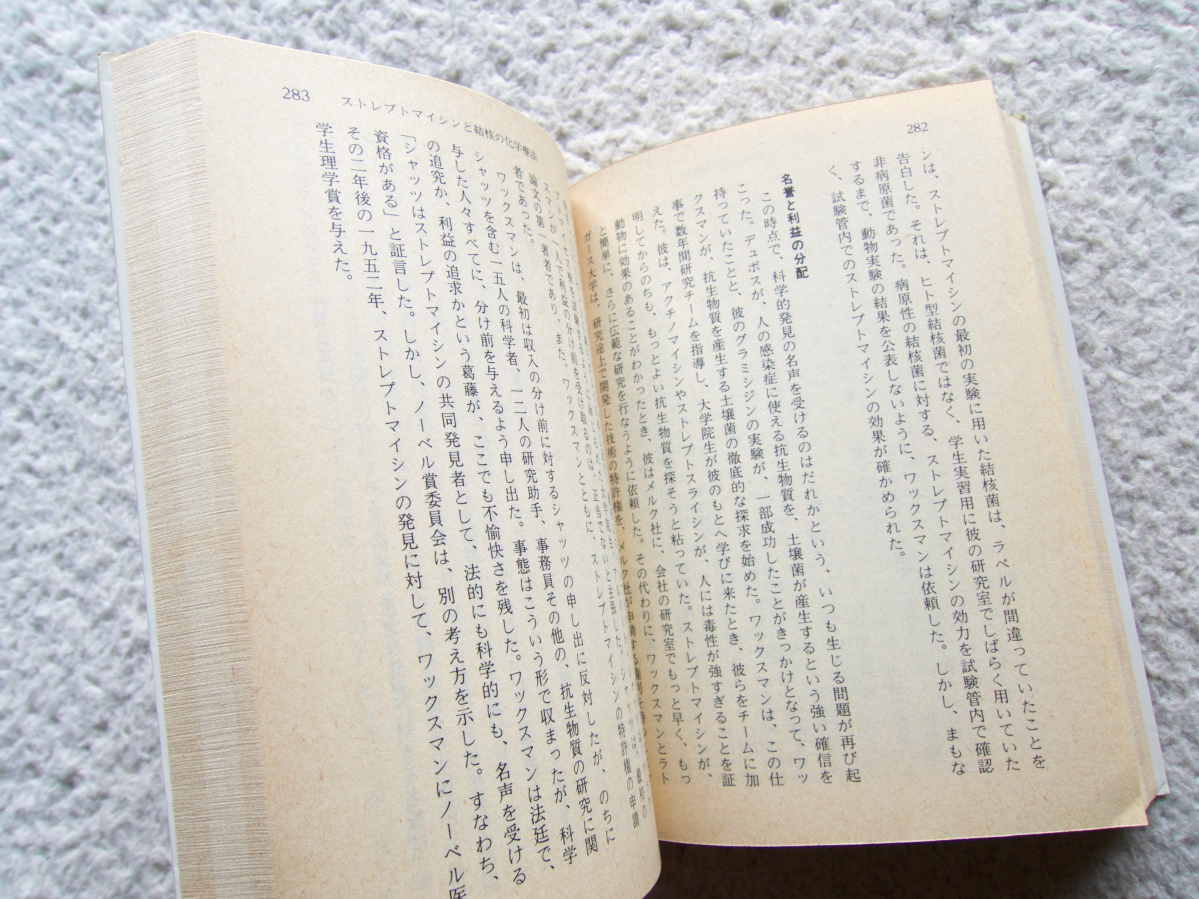 282
ンは、ストレプトマイシンの最初の実験に用いた結核菌は、ラベルが間違っていたことを
告白した。それは、ヒト型結核菌ではなく、学生実習用に彼の研究室でしばらく用いていた
非病原菌であった。病原性の結核菌に対する、ストレプトマイシンの効力を試験管内で確認
するまで、動物実験の結果を公表しないように、ワックスマンは依頼した。しかし、まもな
く、試験管内でのストレプトマイシンの効果が確かめられた。
名誉と利益の分配
この時点で、科学的発見の名声を受けるのはだれかという、いつも生じる問題が再び起
こった。デュボスが、人の感染症に使える抗生物質を、土壌菌が産生するという強い確信を
持っていたことと、彼のグラミシジンの実験が、一部成功したことがきっかけとなって、ワッ
クスマンが、抗生物質を産生する土壌菌の徹底的な探求を始めた。ワックスマンは、この仕
事で数年間研究チームを指導し、大学院生が彼のもとへ学びに来たとき、彼らをチームに加
えた。彼は、アクチノマイシンやストレプトスライシンが、人には毒性が強すぎることを証
明してからのちも、もっとよい抗生物質を探そうと粘っていた。ストレプトマイシンが、
動物に効果のあることがわかったとき、彼はメルク社に、会社の研究室でもっと早く、もっ
と簡単に、さらに広範な研究を行なうように依頼した。その代わりに、ワックスマンとラト
ガース大学は、研究途上で開発した技術の特許権を、メルク社が申請する権利を
283 ストレプトマイシンと結核の化学療法
スマンが一人で利益の分け前を受け取るのは、正当でないと主張した。シャッツは、最初の
論文の第一著者であり、また、ワックスマンとともに、ストレプトマイシンの特許権の申請
者であった。
ワックスマンは、最初は収入の分け前に対するシャッツの申し出に反対したが、のちに
シャッツを含む一五人の科学者、一二人の研究助手、事務員その他の、抗生物質の研究に関
与した人々すべてに、分け前を与えるよう申し出た。事態はこういう形で収まったが、科学
の追究か、利益の追求かという葛藤が、ここでも不愉快さを残した。ワックスマンは法廷で、
「シャッツはストレプトマイシンの共同発見者として、法的にも科学的にも、名声を受ける
資格がある」と証言した。しかし、ノーベル賞委員会は、別の考え方を示した。すなわち、
その二年後の一九五二年、ストレプトマイシンの発見に対して、ワックスマンにノーベル医
学生理学賞を与えた。